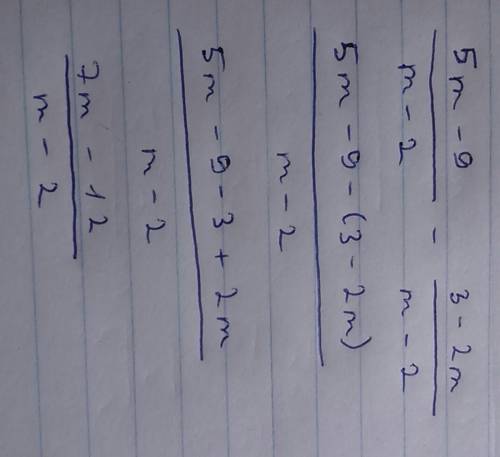 5m - 9 - 3 - 2m
m - 2 m - 2
5m - 9 - (3 - 2m)
m - 2
5m - 9 - 3 + 2m
m - 2
7m - 12
m - 2